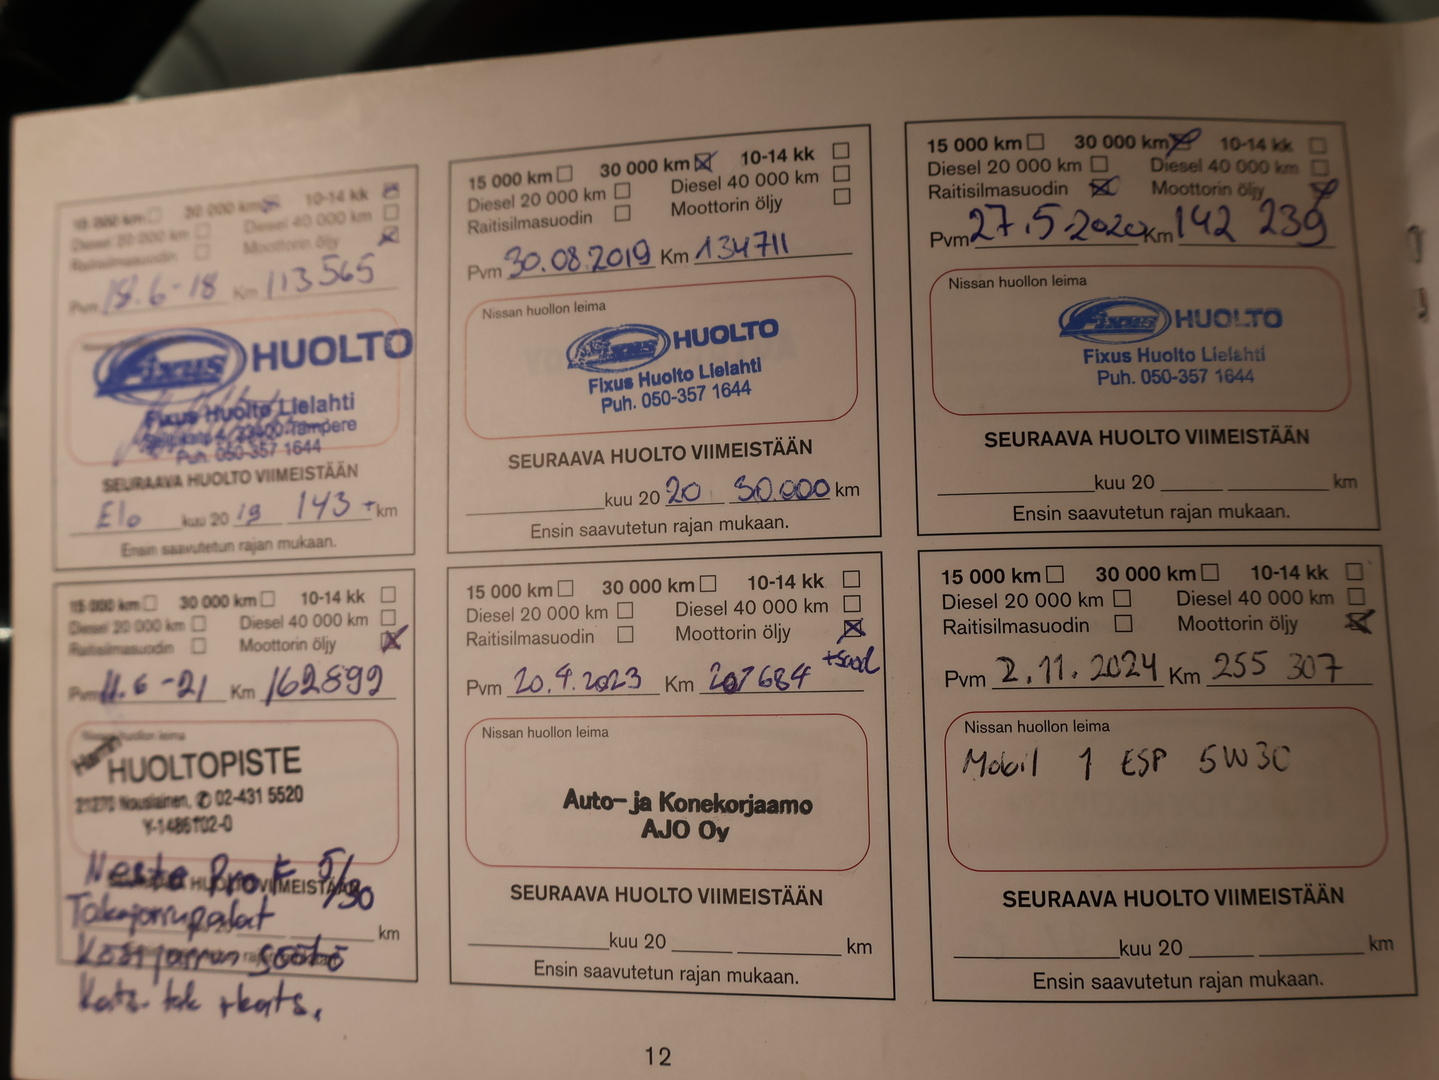 15 000 km 30 000 km 10-14 kk
Diesel 20 000 km Diesel 40 000 km
Raitisilmasuodin Moottorin öljy
Pvm 18.6-18 Km 113565
Fixus HUOLTO
Fixus Huolto Lielahti
33400 Tampere
Puh. 050-357 1644
SEURAAVA HUOLTO VIIMEISTÄÄN
Elo kuu 20 19 143 km
Ensin saavutetun rajan mukaan.
15 000 km 30 000 km 10-14 kk
Diesel 20 000 km Diesel 40 000 km
Raitisilmasuodin Moottorin öljy
Pvm 30.08.2019 Km 134711
Nissan huollon leima
Fixus HUOLTO
Fixus Huolto Lielahti
Puh. 050-357 1644
SEURAAVA HUOLTO VIIMEISTÄÄN
kuu 20 20 30.000 km
Ensin saavutetun rajan mukaan.
15 000 km 30 000 km 10-14 kk
Diesel 20 000 km Diesel 40 000 km
Raitisilmasuodin Moottorin öljy
Pvm 27.5.2020 Km 142 239
Nissan huollon leima
Fixus HUOLTO
Fixus Huolto Lielahti
Puh. 050-357 1644
SEURAAVA HUOLTO VIIMEISTÄÄN
kuu 20 km
Ensin saavutetun rajan mukaan.
15 000 km 30 000 km 10-14 kk
Diesel 20 000 km Diesel 40 000 km
Raitisilmasuodin Moottorin öljy
Pvm 11.6-21 Km 162899
Nissan huollon leima
HUOLTOPISTE
21270 Nousiainen, ✆ 02-431 5520
Y-1486102-0
Neste Pro F 5/30
SEURAAVA HUOLTO VIIMEISTÄÄN
Takajarrupalat
km
Käsijarrun säätö
Kats. tak + kats.
15 000 km 30 000 km 10-14 kk
Diesel 20 000 km Diesel 40 000 km
Raitisilmasuodin Moottorin öljy
+suod
Pvm 20.4.2023 Km 207684
Nissan huollon leima
Auto- ja Konekorjaamo
AJO Oy
SEURAAVA HUOLTO VIIMEISTÄÄN
kuu 20 km
Ensin saavutetun rajan mukaan.
15 000 km 30 000 km 10-14 kk
Diesel 20 000 km Diesel 40 000 km
Raitisilmasuodin Moottorin öljy
Pvm 2.11.2024 Km 255 307
Nissan huollon leima
Mobil 1 ESP 5W30
SEURAAVA HUOLTO VIIMEISTÄÄN
kuu 20 km
Ensin saavutetun rajan mukaan.
12